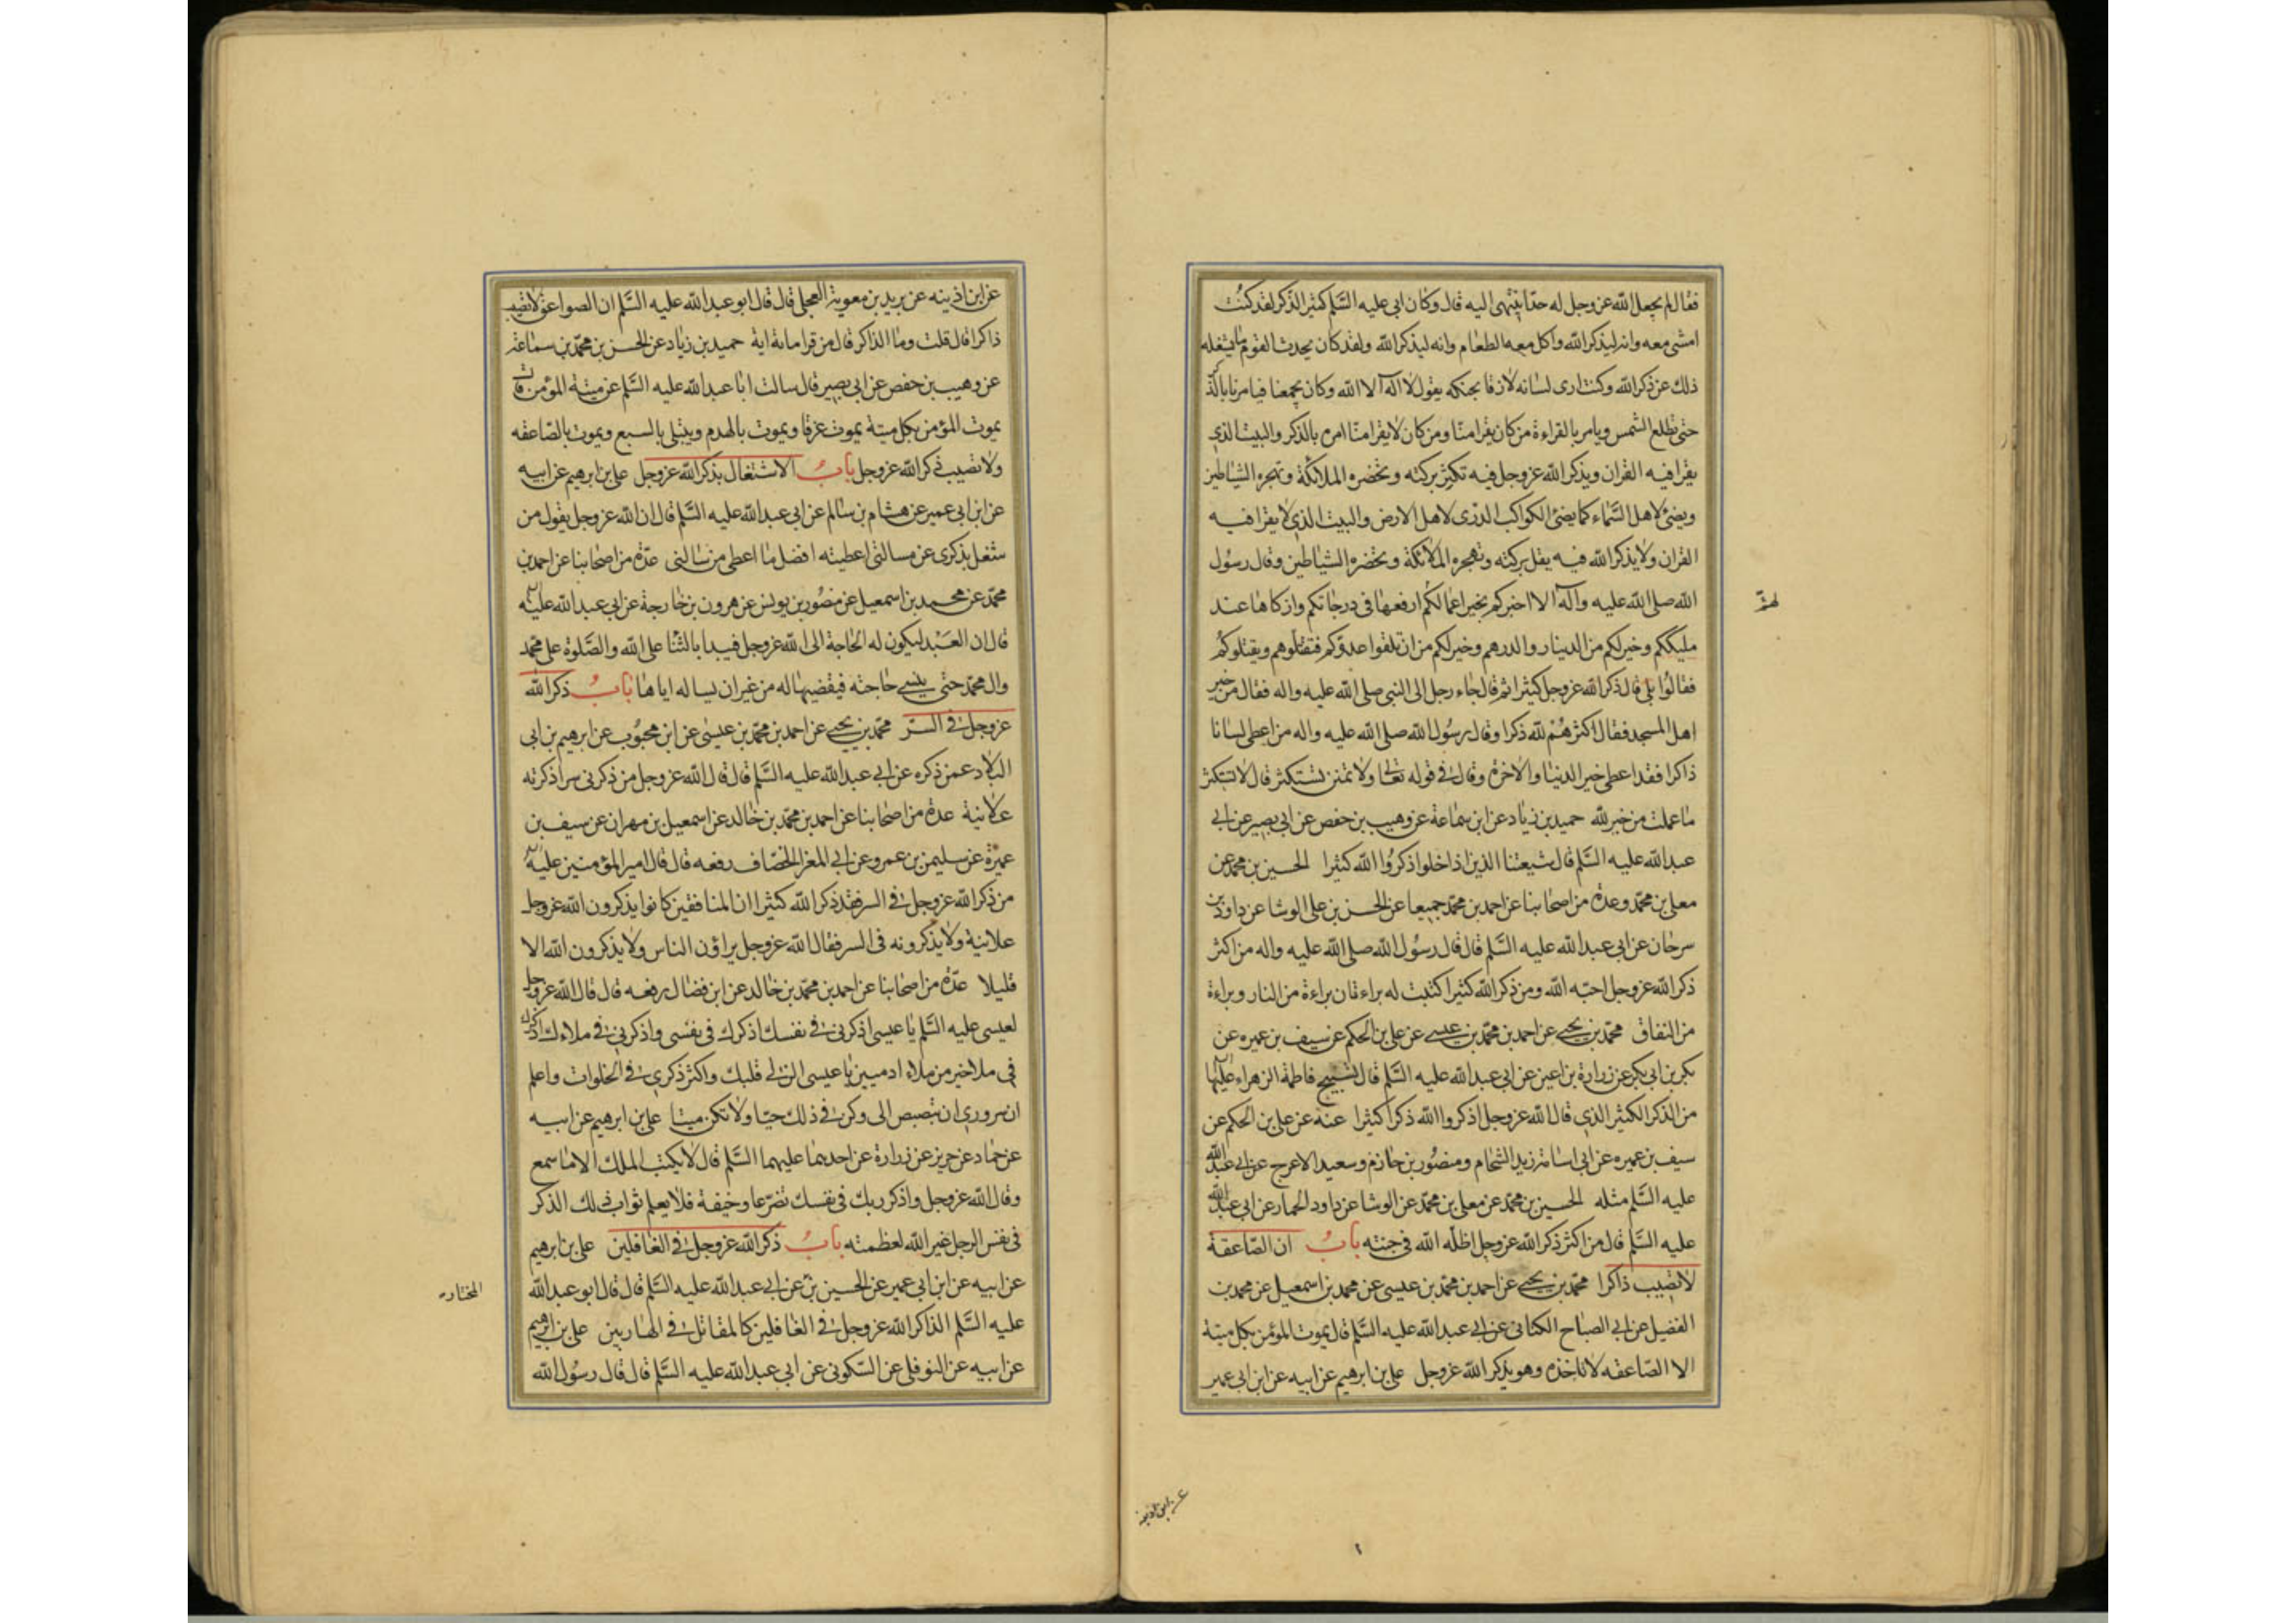 فقال لم يجعل الله عز وجل له حدا ينتهى اليه قال وكان ابى عليه السلم كثير الذكر لقد كنت
امشى معه وانه ليذكر الله واكل معه الطعام وانه ليذكر الله ولقد كان يحدث القوم ما يشغله
ذلك عن ذكر الله وكنت ارى لسانه لازقا بحنكه يقول لا اله الا الله وكان يجمعنا فيامرنا بالذكر
حتى تطلع الشمس ويامر بالقراءة من كان يقرا منا ومن كان لا يقرا منا امره بالذكر والبيت الذى
يقرا فيه القران ويذكر الله عز وجل فيه تكثر بركته وتحضره الملائكة وتهجره الشياطين
ويضئ لاهل السماء كما يضئ الكواكب الدرى لاهل الارض والبيت الذى لا يقرا فيه
القران ولا يذكر الله فيه يقل بركته وتهجره الملائكة وتحضره الشياطين وقال رسول
الله صلى الله عليه وآله الا اخبركم بخير اعمالكم ارفعها فى درجاتكم وازكاها عند
مليككم وخير لكم من الدينار والدرهم وخير لكم من ان تلقوا عدوكم فتقتلوهم ويقتلوكم
فقالوا بلى قال ذكر الله عز وجل كثيرا ثم قال جاء رجل الى النبى صلى الله عليه واله فقال من خير
اهل المسجد فقال اكثرهم لله ذكرا وقال رسول الله صلى الله عليه واله من اعطى لسانا
ذاكرا فقد اعطى خير الدنيا والاخرة وقال فى قوله تعالى ولا تمنن تستكثر قال لا تستكثر
ما عملت من خير لله حميد بن زياد عن ابن سماعة عن وهيب بن حفص عن ابى بصير عن ابى
عبد الله عليه السلم قال شيعتنا الذين اذا خلوا ذكروا الله كثيرا الحسين بن محمد عن
معلى بن محمد وعدة من اصحابنا عن احمد بن محمد جميعا عن الحسن بن على الوشا عن داود بن
سرحان عن ابى عبد الله عليه السلم قال قال رسول الله صلى الله عليه واله من اكثر
ذكر الله عز وجل احبه الله ومن ذكر الله كثيرا كتبت له براءتان براءة من النار وبراءة
من النفاق محمد بن يحيى عن احمد بن محمد بن عيسى عن على بن الحكم عن سيف بن عميره عن
بكر بن ابى بكر عن زرارة بن اعين عن ابى عبد الله عليه السلم قال تسبيح فاطمة الزهراء عليها
من الذكر الكثير الذى قال الله عز وجل اذكروا الله ذكرا كثيرا عنه عن على بن الحكم عن
سيف بن عميره عن ابى اسامة زيد الشحام ومنصور بن حازم وسعيد الاعرج عن ابى عبد الله
عليه السلم مثله الحسين بن محمد عن معلى بن محمد عن الوشا عن داود الحمار عن ابى عبد الله
عليه السلم قال من اكثر ذكر الله عز وجل اظله الله فى جنته باب ان الصاعقة
لا تصيب ذاكرا محمد بن يحيى عن احمد بن محمد بن عيسى عن محمد بن اسمعيل عن محمد بن
الفضيل عن ابى الصباح الكنانى عن ابى عبد الله عليه السلم قال يموت المؤمن بكل ميتة
الا الصاعقه لا تاخذه وهو يذكر الله عز وجل على بن ابرهيم عن ابيه عن ابن ابى عمير
عن ابن اذينه
عن ابن اذينه عن بريد بن معوية العجلى قال قال ابو عبد الله عليه السلم ان الصواعق لا تصيب
ذاكرا قال قلت وما الذاكر قال من قرا مائة اية حميد بن زياد عن الحسن بن محمد بن سماعة
عن وهيب بن حفص عن ابى بصير قال سالت ابا عبد الله عليه السلم عن ميتة المؤمن قال
يموت المؤمن بكل ميتة يموت غرقا ويموت بالهدم ويبتلى بالسبع ويموت بالصاعقه
ولا تصيب ذكر الله عز وجل باب الاشتغال بذكر الله عز وجل على بن ابرهيم عن ابيه
عن ابن ابى عمير عن هشام بن سالم عن ابى عبد الله عليه السلم قال ان الله عز وجل يقول من
شغل بذكرى عن مسالتى اعطيته افضل ما اعطى من سالنى عدة من اصحابنا عن احمد بن
محمد عن محمد بن اسمعيل عن منصور بن يونس عن هرون بن خارجة عن ابى عبد الله عليه
قال ان العبد ليكون له الحاجة الى الله عز وجل فيبدا بالثنا على الله والصلوة على محمد
وال محمد حتى ينسى حاجته فيقضيها له من غير ان يساله اياها باب ذكر الله
عز وجل فى السر محمد بن يحيى عن احمد بن محمد بن عيسى عن ابن محبوب عن ابرهيم بن ابى
البلاد عمن ذكره عن ابى عبد الله عليه السلم قال قال الله عز وجل من ذكرنى سرا ذكرته
علانية عدة من اصحابنا عن احمد بن محمد بن خالد عن اسمعيل بن مهران عن سيف بن
عميرة عن سليمن بن عمرو عن ابى المغرا الخصاف رفعه قال قال امير المؤمنين عليه
من ذكر الله عز وجل فى السر فقد ذكر الله كثيرا ان المنافقين كانوا يذكرون الله عز وجل
علانية ولا يذكرونه فى السر فقال الله عز وجل يراؤن الناس ولا يذكرون الله الا
قليلا عدة من اصحابنا عن احمد بن محمد بن خالد عن ابن فضال رفعه قال قال الله عز وجل
لعيسى عليه السلم يا عيسى اذكرنى فى نفسك اذكرك فى نفسى واذكرنى فى ملاءك اذكرك
فى ملا خير من ملاء ادميين يا عيسى الن لى قلبك واكثر ذكرى فى الخلوات واعلم
ان سرورى ان تبصبص الى وكن فى ذلك حيا ولا تكن ميتا على بن ابرهيم عن ابيه
عن حماد عن حريز عن زرارة عن احدهما عليهما السلم قال لا يكتب الملك الا ما سمع
وقال الله عز وجل واذكر ربك فى نفسك تضرعا وخيفة فلا يعلم ثواب ذلك الذكر
فى نفس الرجل غير الله لعظمته باب ذكر الله عز وجل فى الغافلين على بن ابرهيم
عن ابيه عن ابن ابى عمير عن الحسين بن عن ابى عبد الله عليه السلم قال قال ابو عبد الله
المختار
عليه السلم الذاكر الله عز وجل فى الغافلين كالمقاتل فى الهاربين على بن ابرهيم
عن ابيه عن النوفلى عن السكونى عن ابى عبد الله عليه السلم قال قال رسول الله